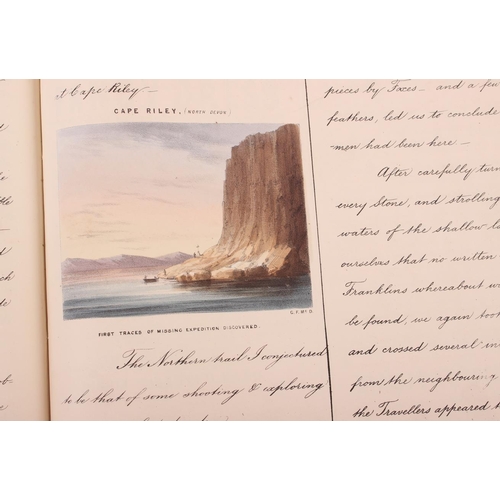 at Cape Riley—
CAPE RILEY, (NORTH DEVON)
G. F. McD
FIRST TRACES OF MISSING EXPEDITION DISCOVERED.
The Northern trail I conjectured
to be that of some shooting & exploring
pieces by Foxes— and a few
feathers, led us to conclude
men had been here—
After carefully turn
every Stone, and strolling
waters of the shallow la
ourselves that no written
Franklins whereabout w
be found, we again took
and crossed several in
from the neighbouring
the Travellers appeared t